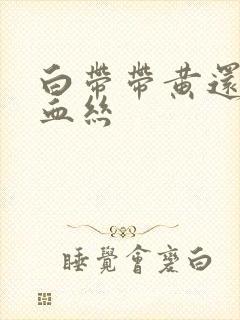 白帶帶黃還
血絲
睡覺會變白